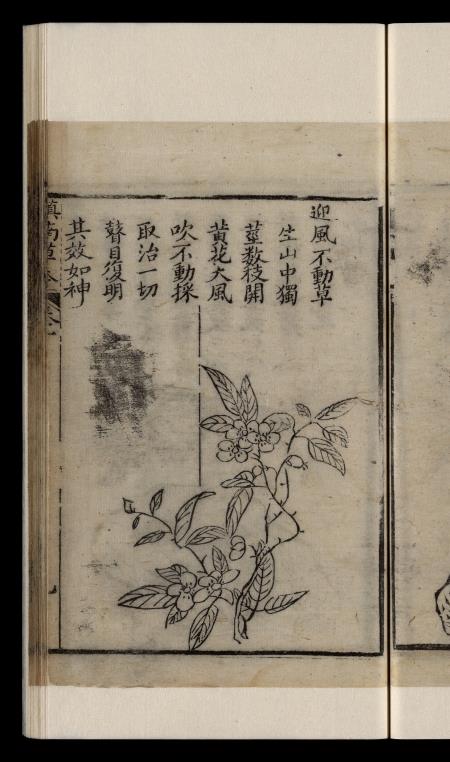 迎風不動草
生山中獨
莖數枝開
黄花大風
吹不動採
取治一切
瞽目復明
其效如神
滇南草本